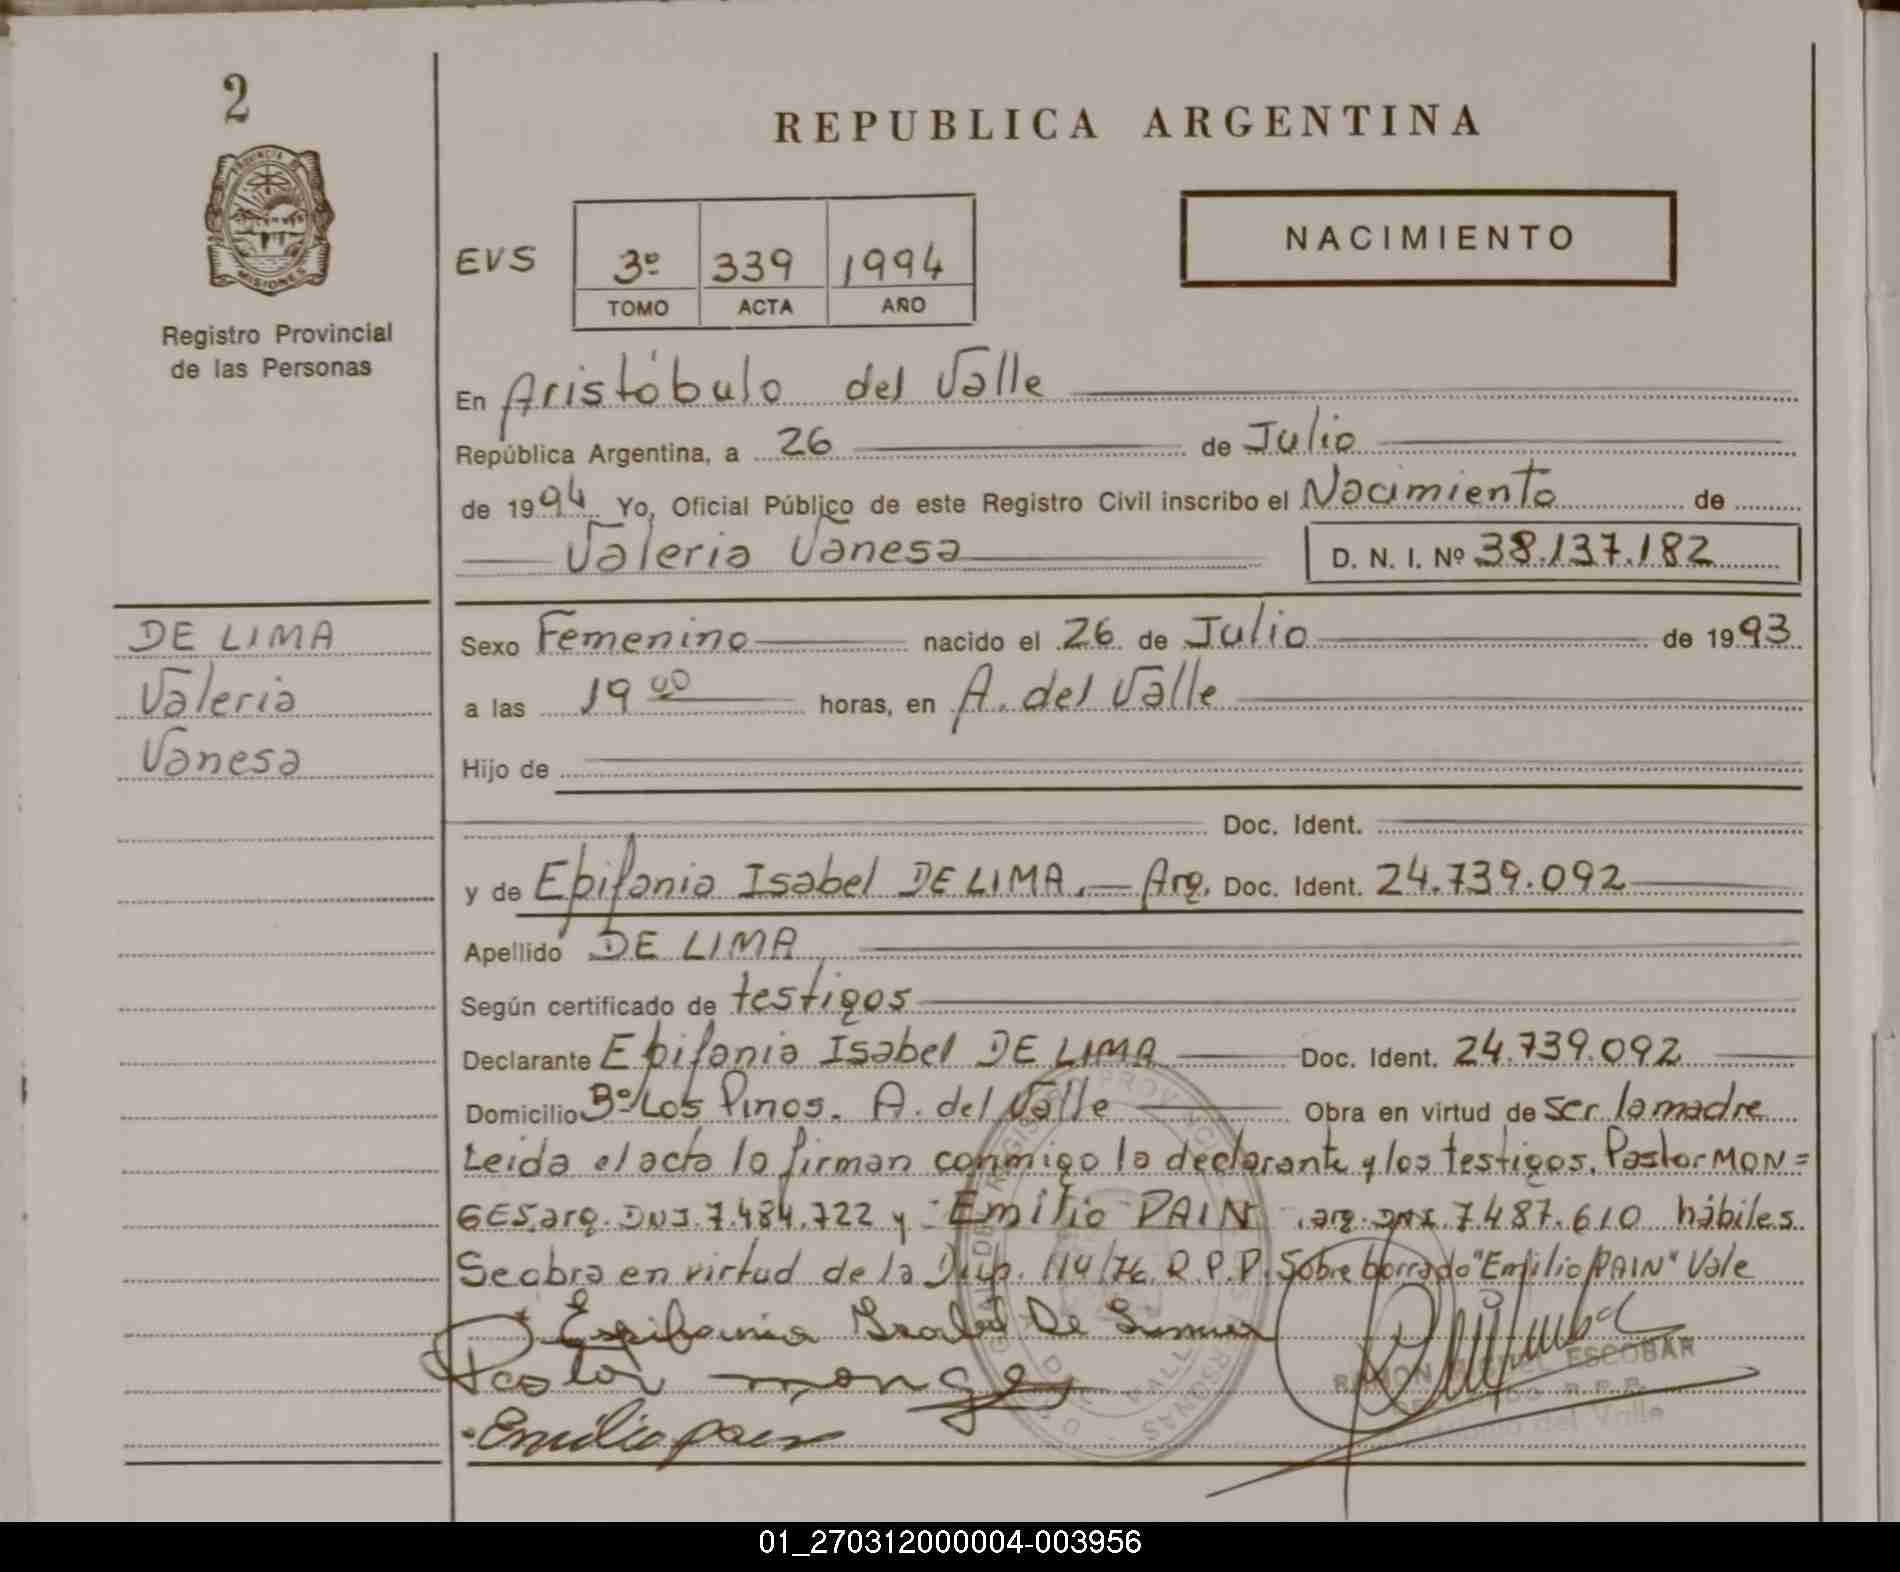 2
REPUBLICA ARGENTINA
PROVINCIA DE
MISIONES
Registro Provincial
de las Personas
NACIMIENTO
EVS
3º 339 1994
TOMO ACTA AÑO
En Aristóbulo del Valle
República Argentina, a 26 de Julio
de 1994 Yo, Oficial Público de este Registro Civil inscribo el Nacimiento de
Valeria Vanesa D. N. I. Nº 38.137.182
DE LIMA
Valeria
Vanesa
Sexo Femenino nacido el 26 de Julio de 1993
a las 19 00 horas, en A. del Valle
Hijo de
Doc. Ident.
y de Epifania Isabel DE LIMA.— Arg. Doc. Ident. 24.739.092
Apellido DE LIMA
Según certificado de testigos
Declarante Epifania Isabel DE LIMA Doc. Ident. 24.739.092
Domicilio Bº Los Pinos. A. del Valle Obra en virtud de ser la madre
Leida el acta la firman conmigo la declarante y los testigos. Pastor MON=
GES, arg. DNI. 7.484.722 y Emilio PAIN arg. DNI. 7.487.610 hábiles.
Se obra en virtud de la Disp. 114/76 R.P.P. Sobre borrado "Emilio PAIN" Vale
Pastor monge
Emilio pain
ESCOBAR
R.P.P.
del Valle
01_270312000004-003956